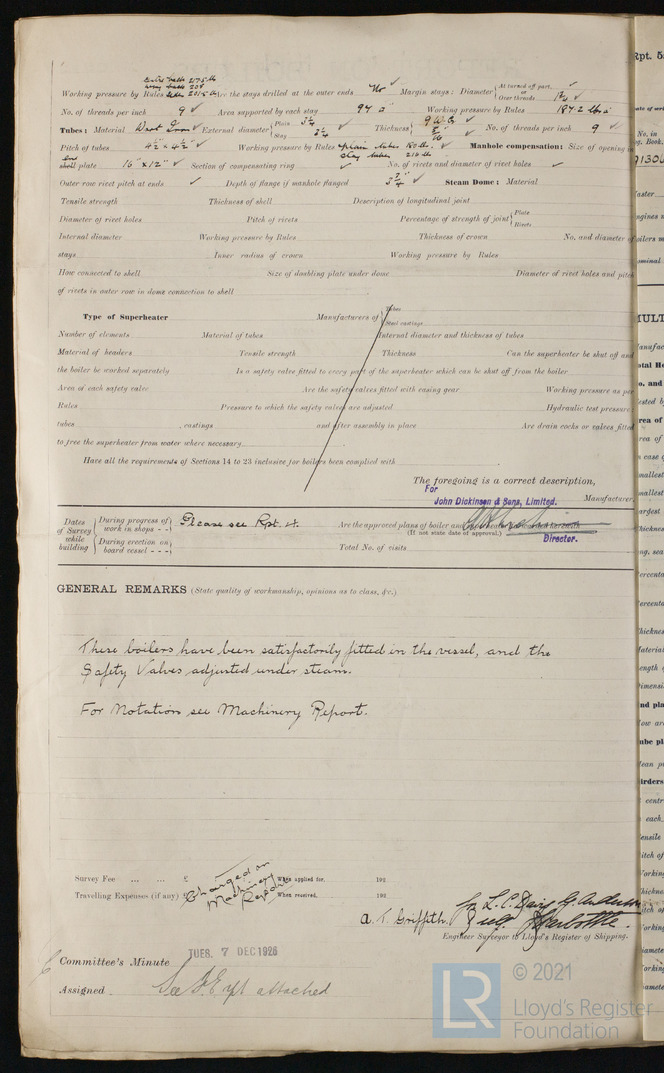 Working pressure by Rules Are the stays drilled at the outer ends No ✓ Margin stays: Diameter { At turned off part, or Over threads
No. of threads per inch 9 ✓ Area supported by each stay 94 ✓ Working pressure by Rules
Tubes: Material Wrot Iron ✓ External diameter { Plain 3¼ Stay 3¼ ✓ Thickness { ✓ No. of threads per inch 9 ✓
Pitch of tubes 4½" x 4½" ✓ Working pressure by Rules Plain tubes Stay tubes Manhole compensation: Size of opening in
shell plate 16" x 12" ✓ Section of compensating ring ✓ No. of rivets and diameter of rivet holes ✓
Outer row rivet pitch at ends ✓ Depth of flange if manhole flanged ✓ Steam Dome: Material
Tensile strength Thickness of shell Description of longitudinal joint
Diameter of rivet holes Pitch of rivets Percentage of strength of joint { Plate Rivets
Internal diameter Working pressure by Rules Thickness of crown No. and diameter of
stays Inner radius of crown Working pressure by Rules
How connected to shell Size of doubling plate under dome Diameter of rivet holes and pitch
of rivets in outer row in dome connection to shell
Type of Superheater Manufacturers of { Tubes Steel castings
Number of elements Material of tubes Internal diameter and thickness of tubes
Material of headers Tensile strength Thickness Can the superheater be shut off and
the boiler be worked separately Is a safety valve fitted to every part of the superheater which can be shut off from the boiler
Area of each safety valve Are the safety valves fitted with easing gear Working pressure as per
Rules Pressure to which the safety valves are adjusted Hydraulic test pressure
tubes , castings and after assembly in place Are drain cocks or valves fitted
to free the superheater from water where necessary
Have all the requirements of Sections 14 to 23 inclusive for boilers been complied with
The foregoing is a correct description,
For
John Dickinson & Sons, Limited. Manufacturer.
Director.
Dates of Survey while building { During progress of work in shops - - } Please see Rpt. 4. Are the approved plans of boiler and
(If not state date of approval.)
{ During erection on board vessel - - - } Total No. of visits
GENERAL REMARKS (State quality of workmanship, opinions as to class, &c.)
These boilers have been satisfactorily fitted in the vessel, and the
Safety Valves adjusted under steam.
For Notation see Machinery Report.
Survey Fee ... ... £ When applied for, 192
Travelling Expenses (if any) £ When received, 192
Charged on
Machinery
Report
for L. C. Davis G. Anderson
A. K. Griffith. & self J. Harbottle.
Engineer Surveyor to Lloyd's Register of Shipping.
Committee's Minute TUES. 7 DEC 1926
Assigned See attached
Rpt. 5
MULT
LR © 2021
Lloyd's Register
Foundation